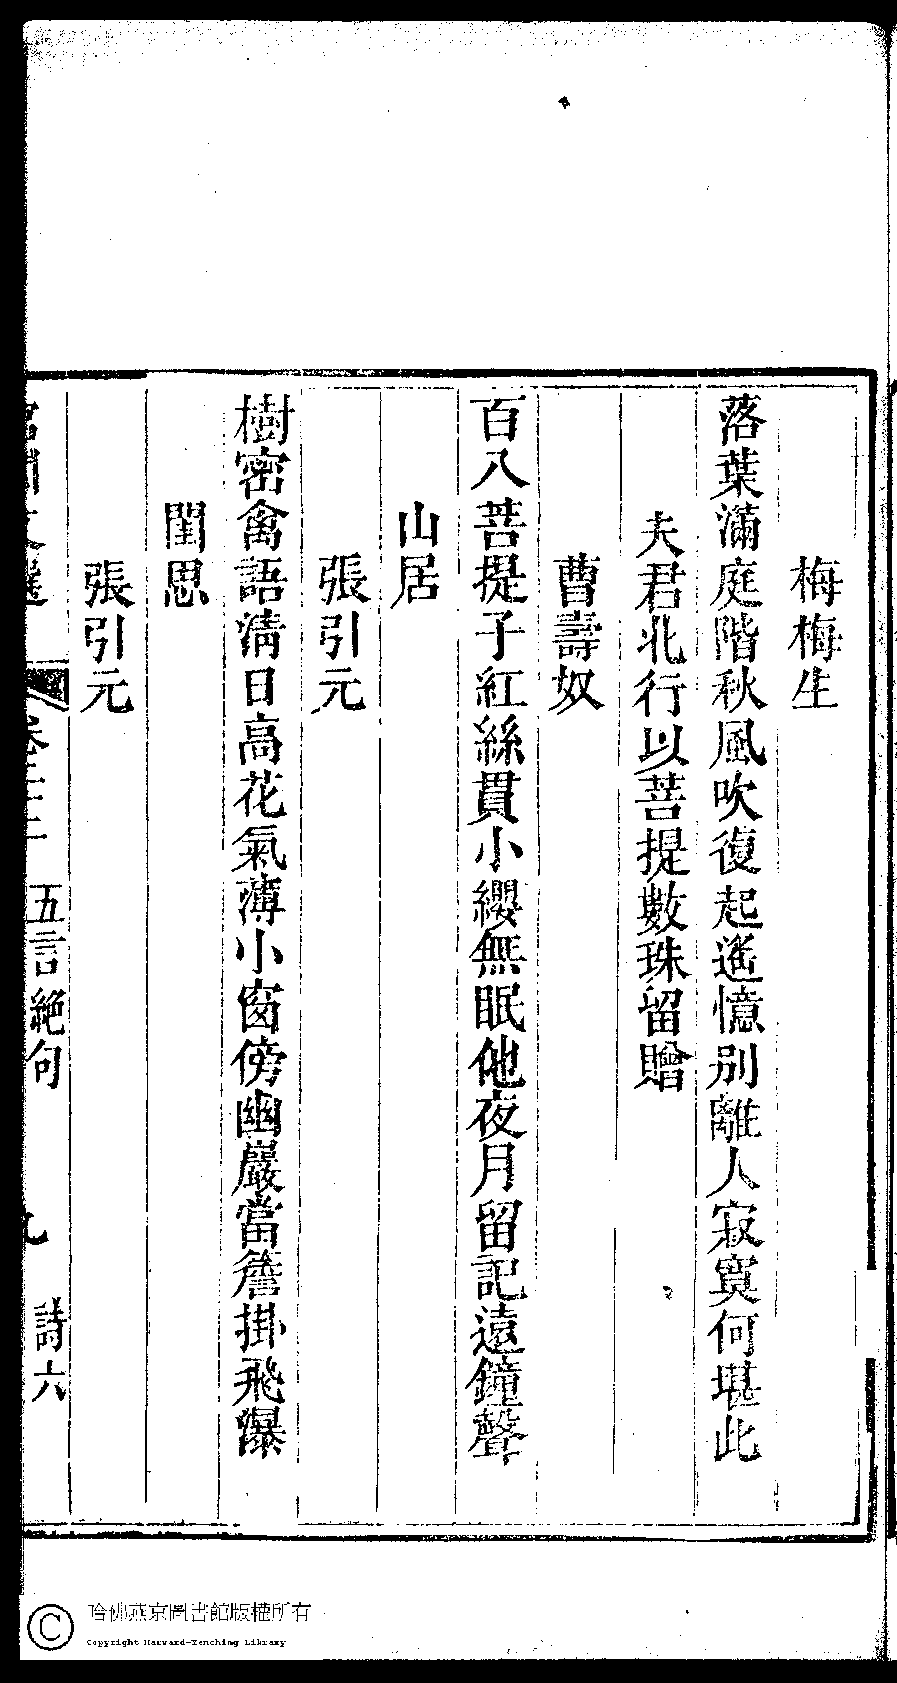 梅梅生
落葉滿庭階秋風吹復起遙憶別離人寂寞何堪此
夫君北行以菩提數珠留贈
曹壽奴
百八菩提子紅絲貫小纓無眠他夜月留記遠鐘聲
山居
張引元
樹密禽語淸日高花氣薄小窗傍幽巖當簷掛飛瀑
閨思
張引元
五言絕句
詩六
哈佛燕京圖書館版權所有
Copyright Harvard-Yenching Library